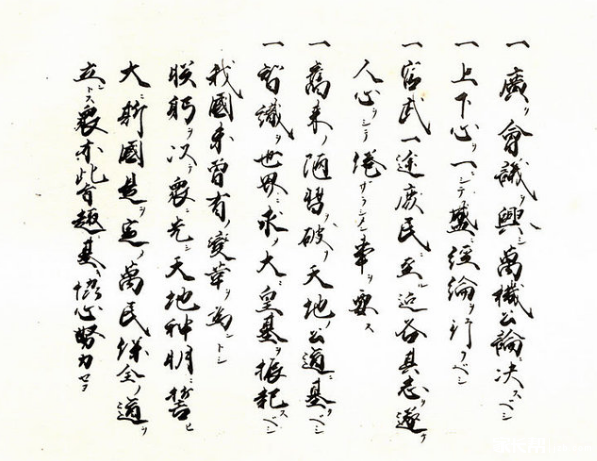 一 廣ク會議ヲ興シ萬機公論ニ決スベシ
一 上下心ヲ一ニシテ盛ニ經綸ヲ行フベシ
一 官武一途庶民ニ至ル迄各其志ヲ遂ケ
人心ヲシテ倦ザラシメン事ヲ要ス
一 舊來ノ陋習ヲ破リ天地ノ公道ニ基クベシ
一 智識ヲ世界ニ求メ大ニ皇基ヲ振起スベシ
我國未曾有ノ變革ヲ為ントシ
朕躬ヲ以テ衆ニ先シ天地神明ニ誓ヒ
大ニ斯國是ヲ定メ萬民保全ノ道ヲ
立ントス衆亦此旨趣ニ基キ協心努力セヨ